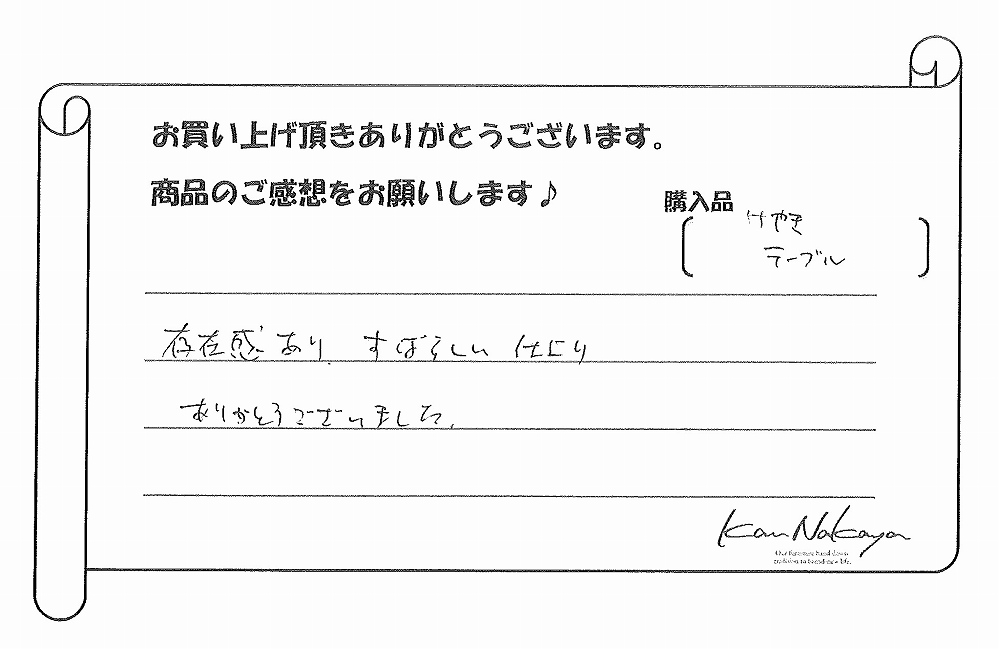 お買い上げ頂きありがとうございます。
商品のご感想をお願いします♪
購入品
けやき
テーブル
存在感あり すばらしい 仕上り
ありがとうございました。
Kan Nakaya
Our furniture hand down
tradition to brand-new life.